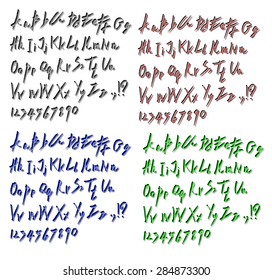 Gg
Hh Ii Jj Kk Ll Mm Nn
Oo Pp Qq Rr Ss Tt Uu
Vv Ww Xx Yy Zz .,!?
1234567890
Gg
Hh Ii Jj Kk Ll Mm Nn
Oo Pp Qq Rr Ss Tt Uu
Vv Ww Xx Yy Zz .,!?
1234567890
Gg
Hh Ii Jj Kk Ll Mm Nn
Oo Pp Qq Rr Ss Tt Uu
Vv Ww Xx Yy Zz .,!?
1234567890
Gg
Hh Ii Jj Kk Ll Mm Nn
Oo Pp Qq Rr Ss Tt Uu
Vv Ww Xx Yy Zz .,!?
1234567890
shutterstock.com · 284873300